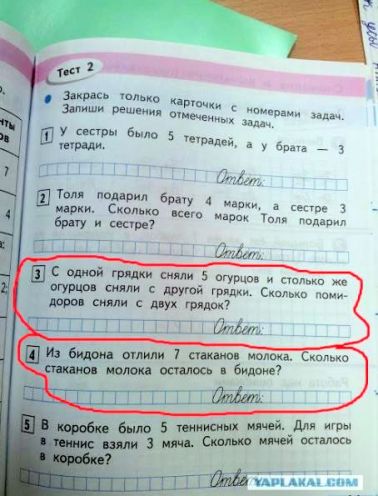 Тест 2
Закрась только карточки с номерами задач.
Запиши решения отмеченных задач.
1 У сестры было 5 тетрадей, а у брата — 3
тетради.
Ответ:
2 Толя подарил брату 4 марки, а сестре 3
марки. Сколько всего марок Толя подарил
брату и сестре?
Ответ:
3 С одной грядки сняли 5 огурцов и столько же
огурцов сняли с другой грядки. Сколько поми-
доров сняли с двух грядок?
Ответ:
4 Из бидона отлили 7 стаканов молока. Сколько
стаканов молока осталось в бидоне?
Ответ:
5 В коробке было 5 теннисных мячей. Для игры
в теннис взяли 3 мяча. Сколько мячей осталось
в коробке?
YAPLAKAL.COM